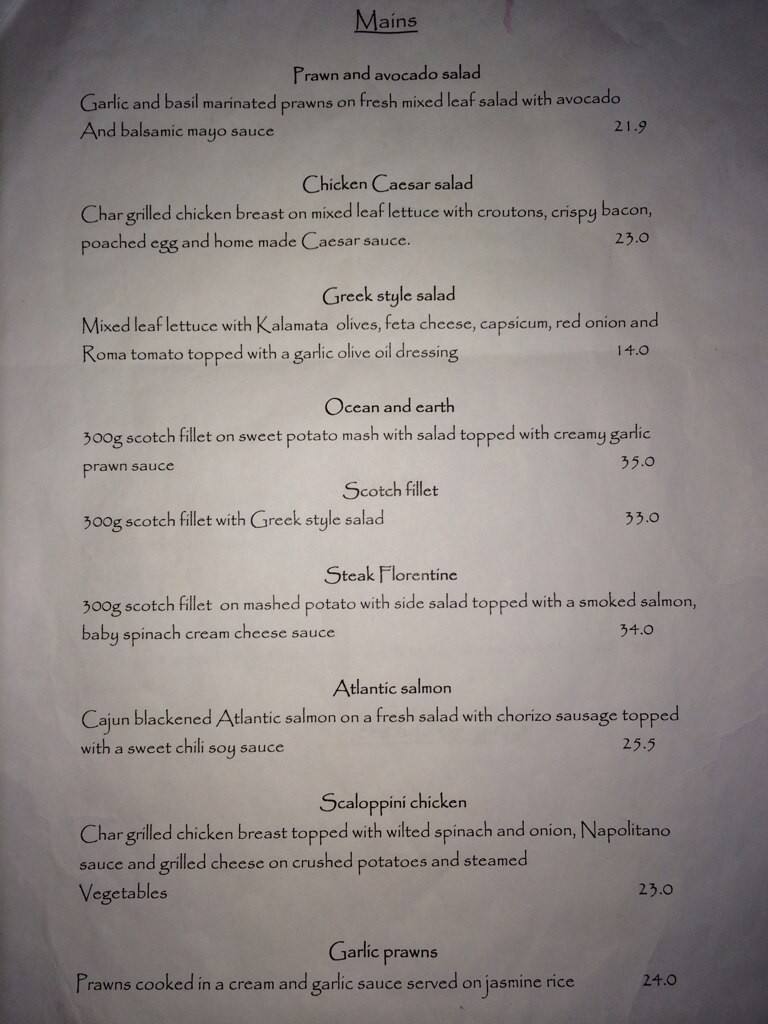 Mains
Prawn and avocado salad
Garlic and basil marinated prawns on fresh mixed leaf salad with avocado
And balsamic mayo sauce 21.9
Chicken Caesar salad
Char grilled chicken breast on mixed leaf lettuce with croutons, crispy bacon,
poached egg and home made Caesar sauce. 23.0
Greek style salad
Mixed leaf lettuce with Kalamata olives, feta cheese, capsicum, red onion and
Roma tomato topped with a garlic olive oil dressing 14.0
Ocean and earth
300g scotch fillet on sweet potato mash with salad topped with creamy garlic
prawn sauce 35.0
Scotch fillet
300g scotch fillet with Greek style salad 33.0
Steak Florentine
300g scotch fillet on mashed potato with side salad topped with a smoked salmon,
baby spinach cream cheese sauce 34.0
Atlantic salmon
Cajun blackened Atlantic salmon on a fresh salad with chorizo sausage topped
with a sweet chili soy sauce 25.5
Scaloppini chicken
Char grilled chicken breast topped with wilted spinach and onion, Napolitano
sauce and grilled cheese on crushed potatoes and steamed
Vegetables 23.0
Garlic prawns
Prawns cooked in a cream and garlic sauce served on jasmine rice 24.0